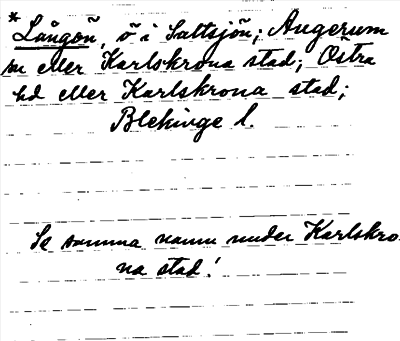 *Långön, ö i Saltsjön; Augerum
sn eller Karlskrona stad; Östra
hd eller Karlskrona stad;
Blekinge l.
Se samma namn under Karlskro-
na stad!